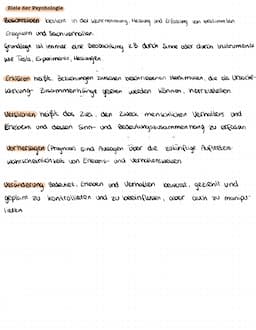 Ziele der Psychologie
Beschreiben besteht in der Wahrnehmung, Messung und Erfassung von bestimmten
Ereignissen und Sachverhalten
Grundlage ist immer eine Beobachtung z.B durch Sinne oder durch Instrumente
wie Tests, Experimente, Messungen
Erklären heißt, Beziehungen zwischen beschriebenen Merkmalen, die als Ursache-
Wirkung-Zusammenhänge gesehen werden können, herzustellen
Verstehen heißt das Ziel, den Zweck menschlichen Verhaltens und
Erlebens und dessen Sinn- und Bedeutungszusammenhang zu erfassen
Vorhersagen (Prognose) sind Aussagen über die zukünftige Auftretens-
wahrscheinlichkeit von Erlebens- und Verhaltensweisen
Veränderung bedeutet, Erleben und Verhalten bewusst, gezielt und
geplant zu kontrollieren und zu beeinflussen, aber auch zu manipu-
lieren